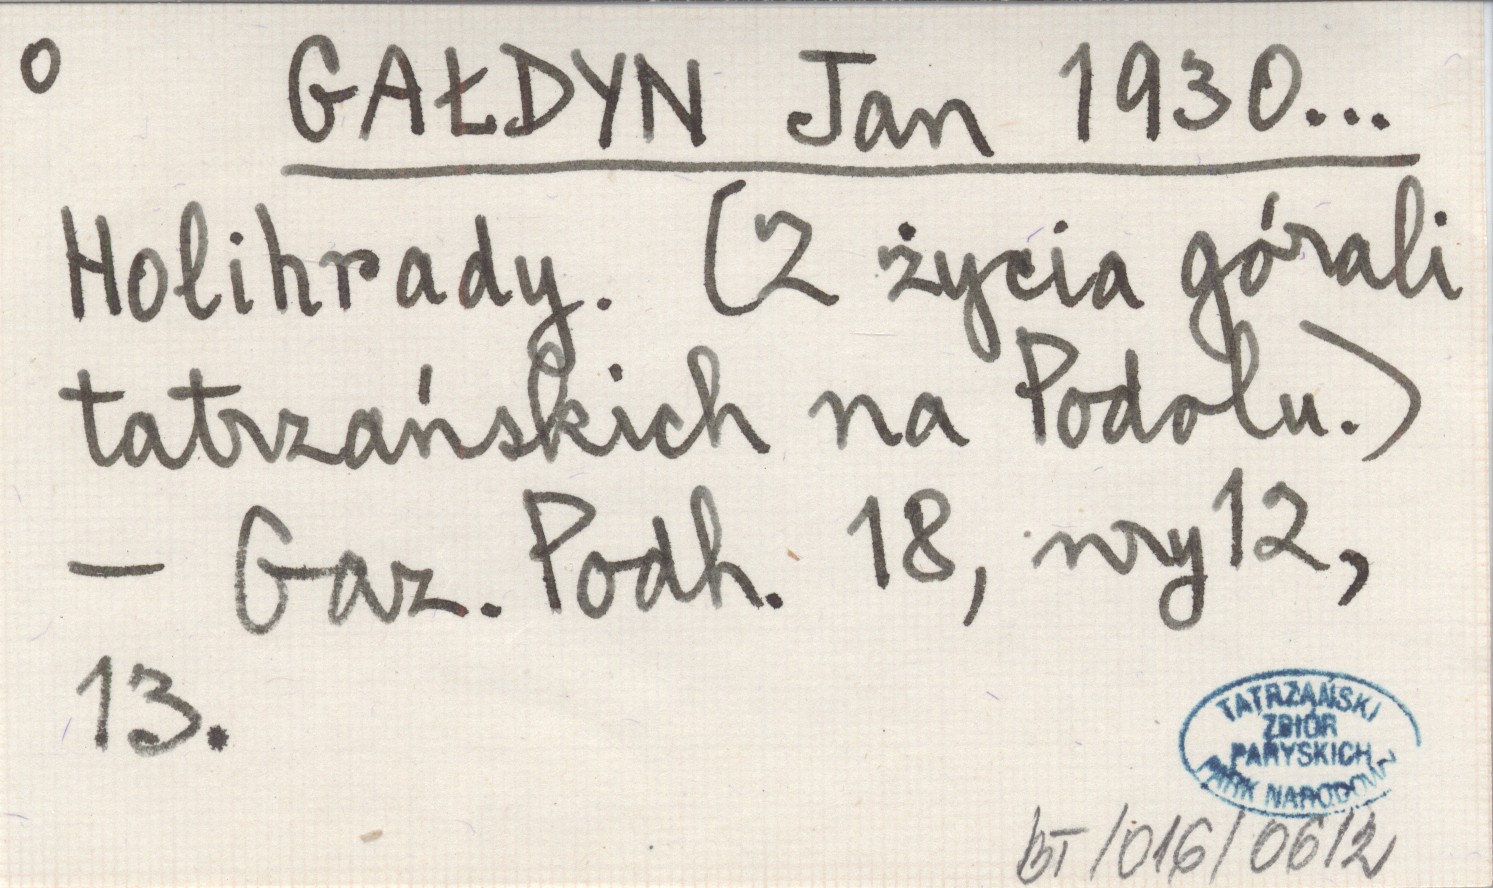 o GAŁDYN Jan 1930...
Holihrady. (Z życia górali
tatrzańskich na Podolu.)
— Gaz. Podh. 18, nry 12,
13.
TATRZAŃSKI
ZBIÓR
PARYSKICH
PARK NARODOWY
BT/016/0612